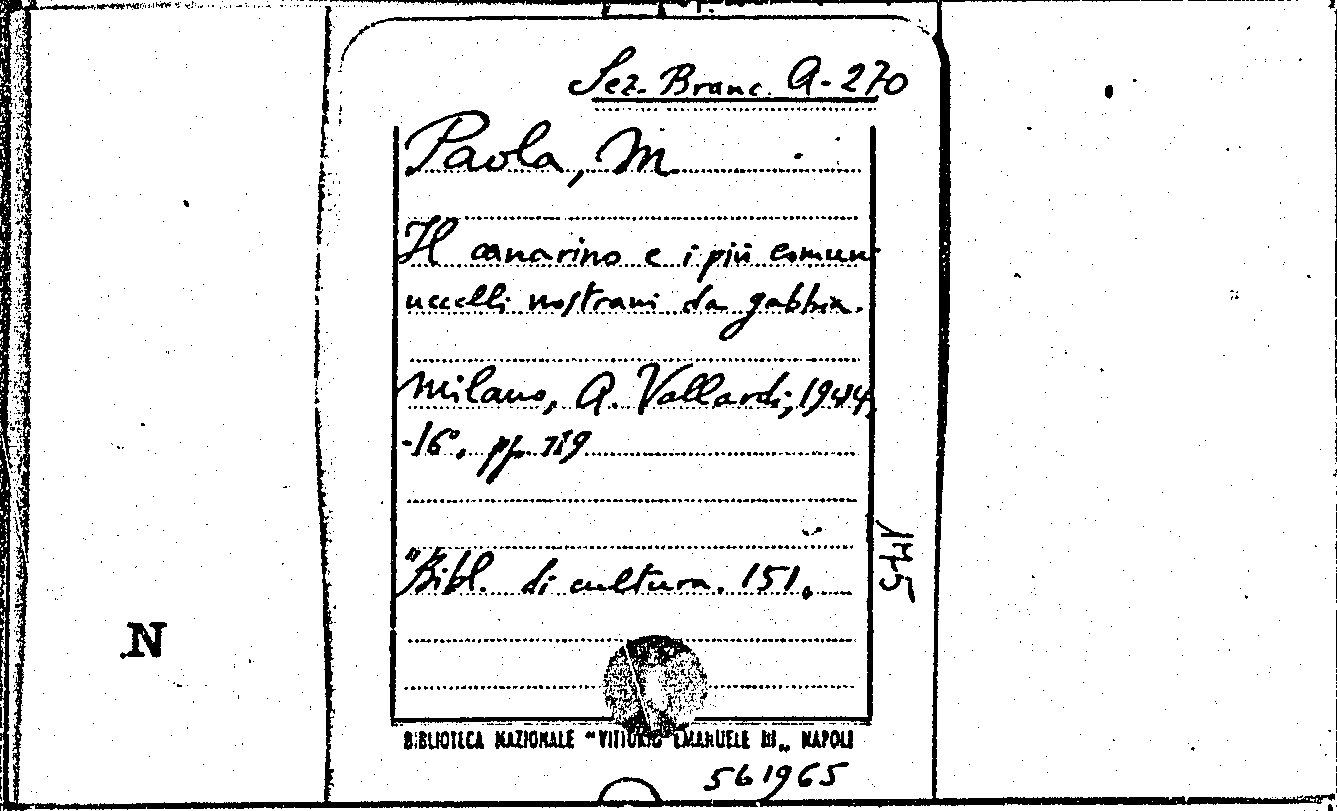 Sez. Branc. A-270
Paola, M.
Il canarino e i più comuni
uccelli nostrani da gabbia.
Milano, A. Vallardi, 1944,
-16°. pp. 119
"Bibl. di cultura. 151.
175
N
BIBLIOTECA NAZIONALE "VITTORIO EMANUELE III„ NAPOLI
561965